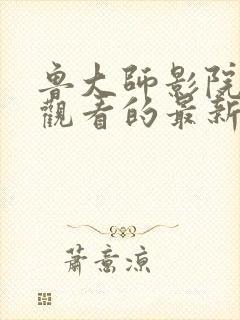 魯大師影院
觀看的最新
蕭意涼